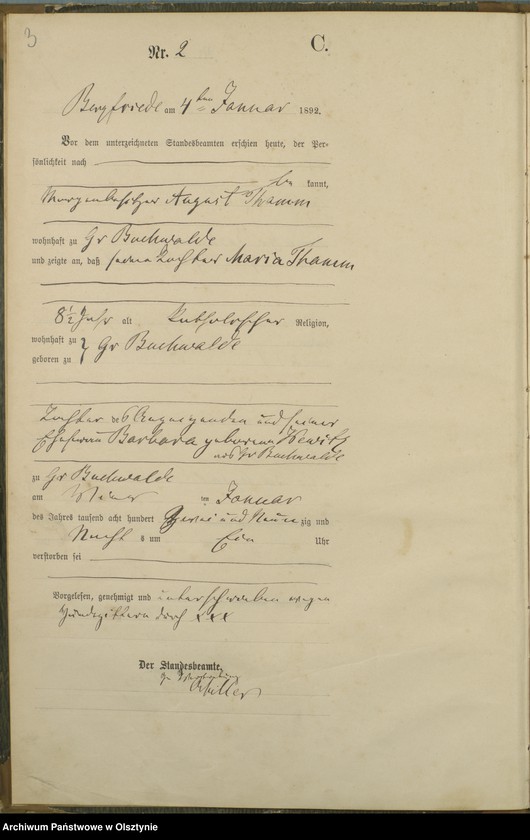 3
Nr. 2
C.
Bergfriede am 4ten Januar 1892.
Vor dem unterzeichneten Standesbeamten erschien heute, der Per-
sönlichkeit nach
be kannt,
August Thamm
wohnhaft zu Gr Buchwalde
und zeigte an, daß seine Tochter Maria Thamm
8½ Jahr alt katholischer Religion,
wohnhaft zu } Gr Buchwalde
geboren zu
Tochter des Anzeigenden und seiner
Ehefrau Barbara geborenen
aus Gr Buchwalde
zu Gr Buchwalde
am ten Januar
des Jahres tausend acht hundert Zwei und Neun zig und
Nacht s um Ein Uhr
verstorben sei
Vorgelesen, genehmigt und unterschrieben wegen
Handzittern durch xxx
Der Standesbeamte.